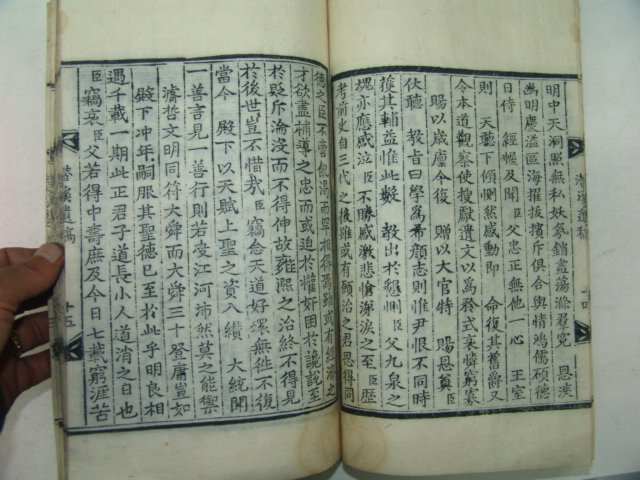 明中天洞照無私妖氛銷盡湯滌羣兇 恩渙
幽明慶溢區海擢拔擯斥俱合輿情鴻儒碩德
日侍 經幄及聞 臣父忠正無他一心 王室
則 天聽下傾惻然感動即 命復其舊爵又
令本道觀察使搜獻遺文以爲矜式哀憐窮裔
賜以歲廩今復 贈以大官特 賜恩奠臣
伏聽 敎旨曰學爲希顔志則惟尹恨不同時
獲其輔益惟此數 敎出於 臣父九泉之
魄亦應感泣臣不勝感激悲愴涕淚之至臣歷
考前史自三代之後雖或有願治之君思得同
德之臣不啻飢渴而罕相得焉雖或有經濟之
才欲盡補導之忠而或迫於權奸困於讒說至
於貶斥淪沒而不得伸故雍熙之治終不得見
於後世豈不惜哉 臣竊念天道好還無往不復
當今 殿下以天賦上聖之資入纘 大統聞
一善言見一善行則若受江河沛然莫之能禦
濬哲文明同符大舜而大舜三十登庸豈如
殿下冲年嗣服其聖德已至於此乎明良相
遇千載一期此正君子道長小人道消之日也
臣竊哀臣父若得中壽庶及今日七載窮涯苦
潛溪遺稿 十四
潛溪遺稿 十五